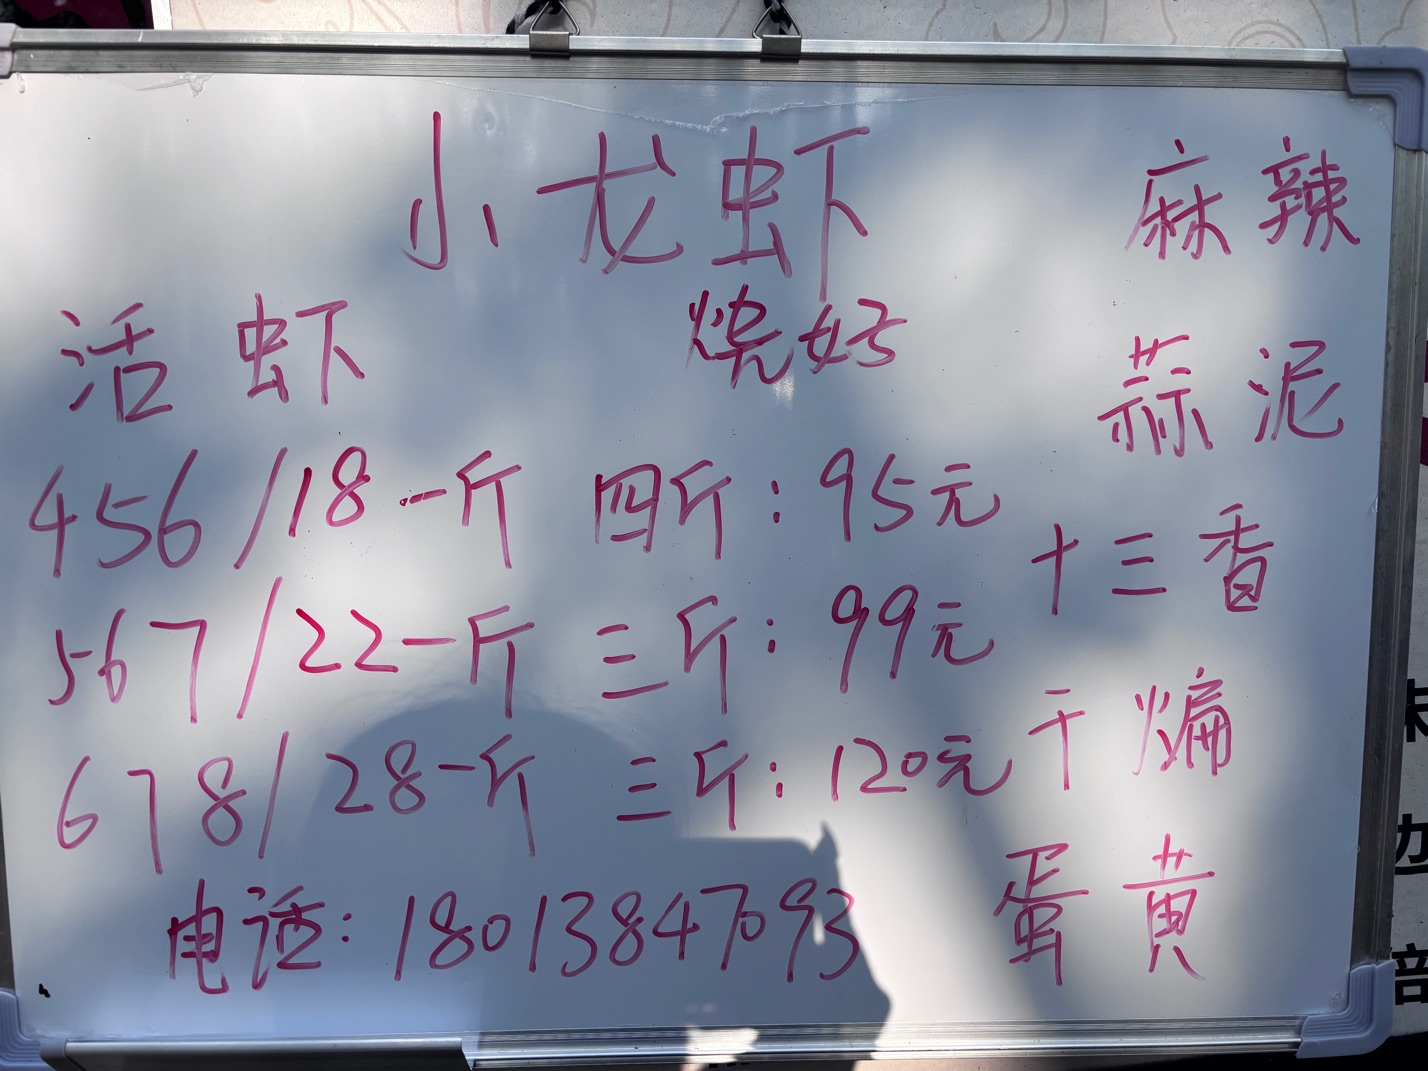 小龙虾
活虾
烧好
456/18一斤 四斤：95元
567/22一斤 三斤：99元
678/28一斤 三斤：120元
电话：18013847093
麻辣
蒜泥
十三香
干煸
蛋黄